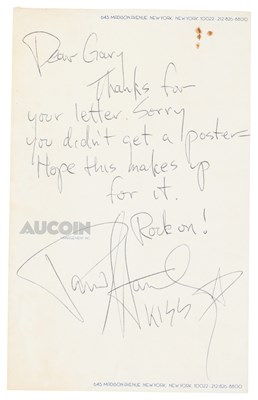 645 MADISON AVENUE, NEW YORK, NEW YORK 10022 • 212-826-8800
Dear Gary
Thanks for
your letter. Sorry
you didn't get a poster–
Hope this makes up
for it.
Rock on!
AUCOIN
MANAGEMENT, INC.
Paul Stanley
KISS
645 MADISON AVENUE, NEW YORK, NEW YORK 10022 • 212-826-8800